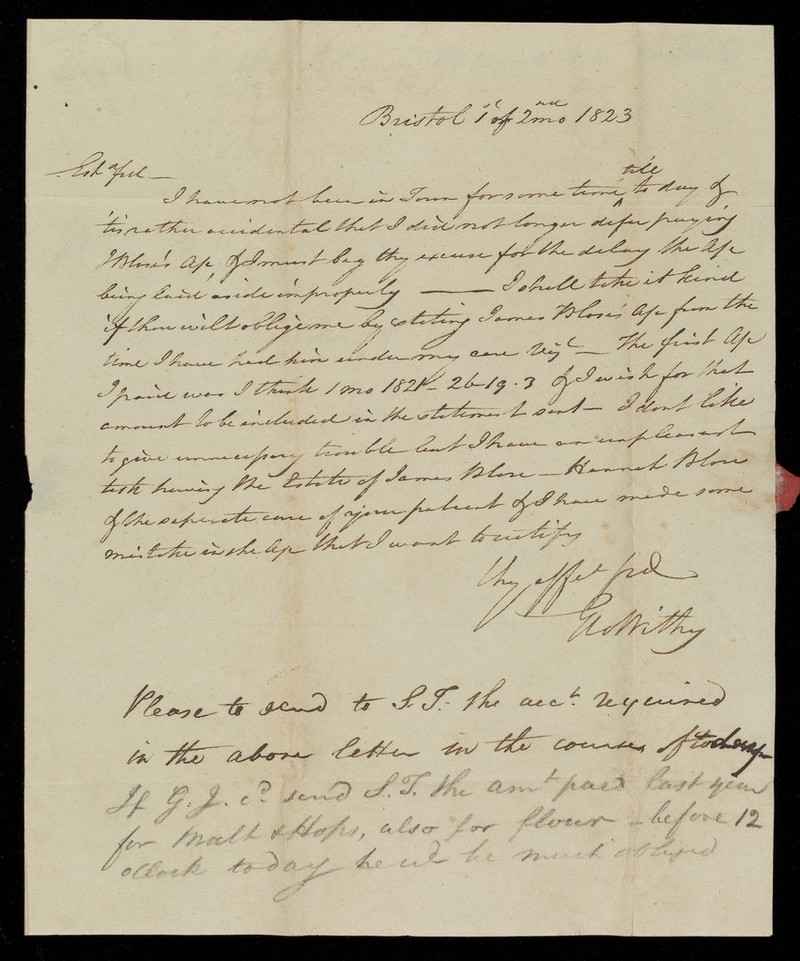 Bristol 1st of 2nd mo 1823
Estd frd —
I have not been in Town for some time till to day &
'tis rather accidental that I did not longer defer paying
J Blore's a/c, & I must beg thy excuse for the delay the a/c
being laid aside improperly — I shall take it kind
if thou wilt oblige me by stating James Blore's a/c from the
time I have had him under my care — The first a/c
I paid was I think 1 mo 1821 – 26-19-3 & I wish for that
amount to be included in the statement sent — I dont like
to give unnecessary trouble but I have an unpleasant
task having the Estate of James Blore — Hannah Blore
& the separate care of your patient & I have made some
mistake in the a/c that I want to rectify
thy afft frd
Geo Withy
Please to send to S.T. the acct. required
in the above letter in the course of today—
If G. J. cd. send S.T. the amt paid last year
for Malt & Hops, also for flour – before 12
oClock today he wd be much obliged